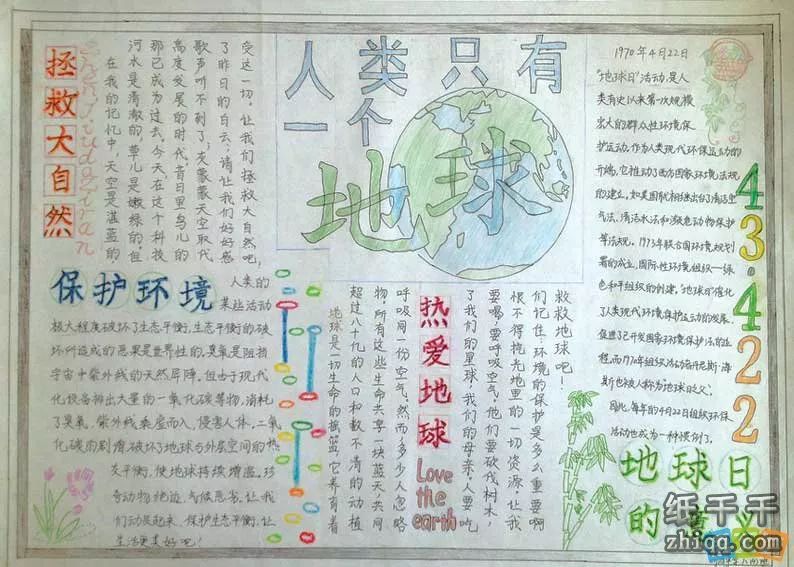 人类只有
一个
地球
拯救大自然
zhěnɡjiùdàzìrán
在我的记忆中，天空是湛蓝的
河水是清澈的，草儿是嫩绿的，但
那已成为过去，今天在这个科技
高度发展的时代，昔日里鸟儿的
歌声听不到了；灰蒙蒙天空取代
了昨日的白云；请让我们好好感
受这一切，让我们拯救大自然吧，
保护环境
人类的
某些活动
极大程度破坏了生态平衡，生态平衡的破
坏所造成的恶果是世界性的，臭氧是阻挡
宇宙中紫外线的天然屏障，但由于现代
化设备排出大量的一氧化碳等物，消耗
了臭氧，紫外线乘虚而入，侵害人体，二氧
化碳的剧增，破坏了地球与外层空间的热
灰平衡，使地球持续增温，珍
奇动物绝迹，气候恶劣，让我
们行动起来，保护生态平衡，让
生活更美好吧！
地球是一切生命的摇篮，它养育着
超过八十亿的人口和数不清的动植
物，所有这些生命共享一块蓝天，共同
呼吸同一份空气，然而多少人忽略
热爱地球
Love
the
earth
了我们的星球，我们的母亲，人要吃
要喝，要呼吸空气，他们要砍伐树木，
恨不得挖光地里的一切资源，让我
们记住：环境的保护是多么重要啊
救救地球吧！
1970年4月22日
“地球日”活动，是人
类有史以来第一次规模
宏大的群众性环境保
护运动，作为人类现代环保运动的
开端，它推动了西方国家环境法规
的建立，如美国就相继出台了清洁空
气法，清洁水法和濒危动物保护
等法规，1973年联合国环境规划
署的成立，国际性环境组织——绿
色和平组织的创建，“地球日”催化
了人类现代环境保护运动的发展，
促进了已开发国家环境保护法的进
程，而1970年组织活动者丹尼斯·海
斯也被人称为地球日之父。
因此，每年的4月22日组织环保
活动也成为一种惯例了。
43.422
地球日
的意义
纸千千
zhiqq.com